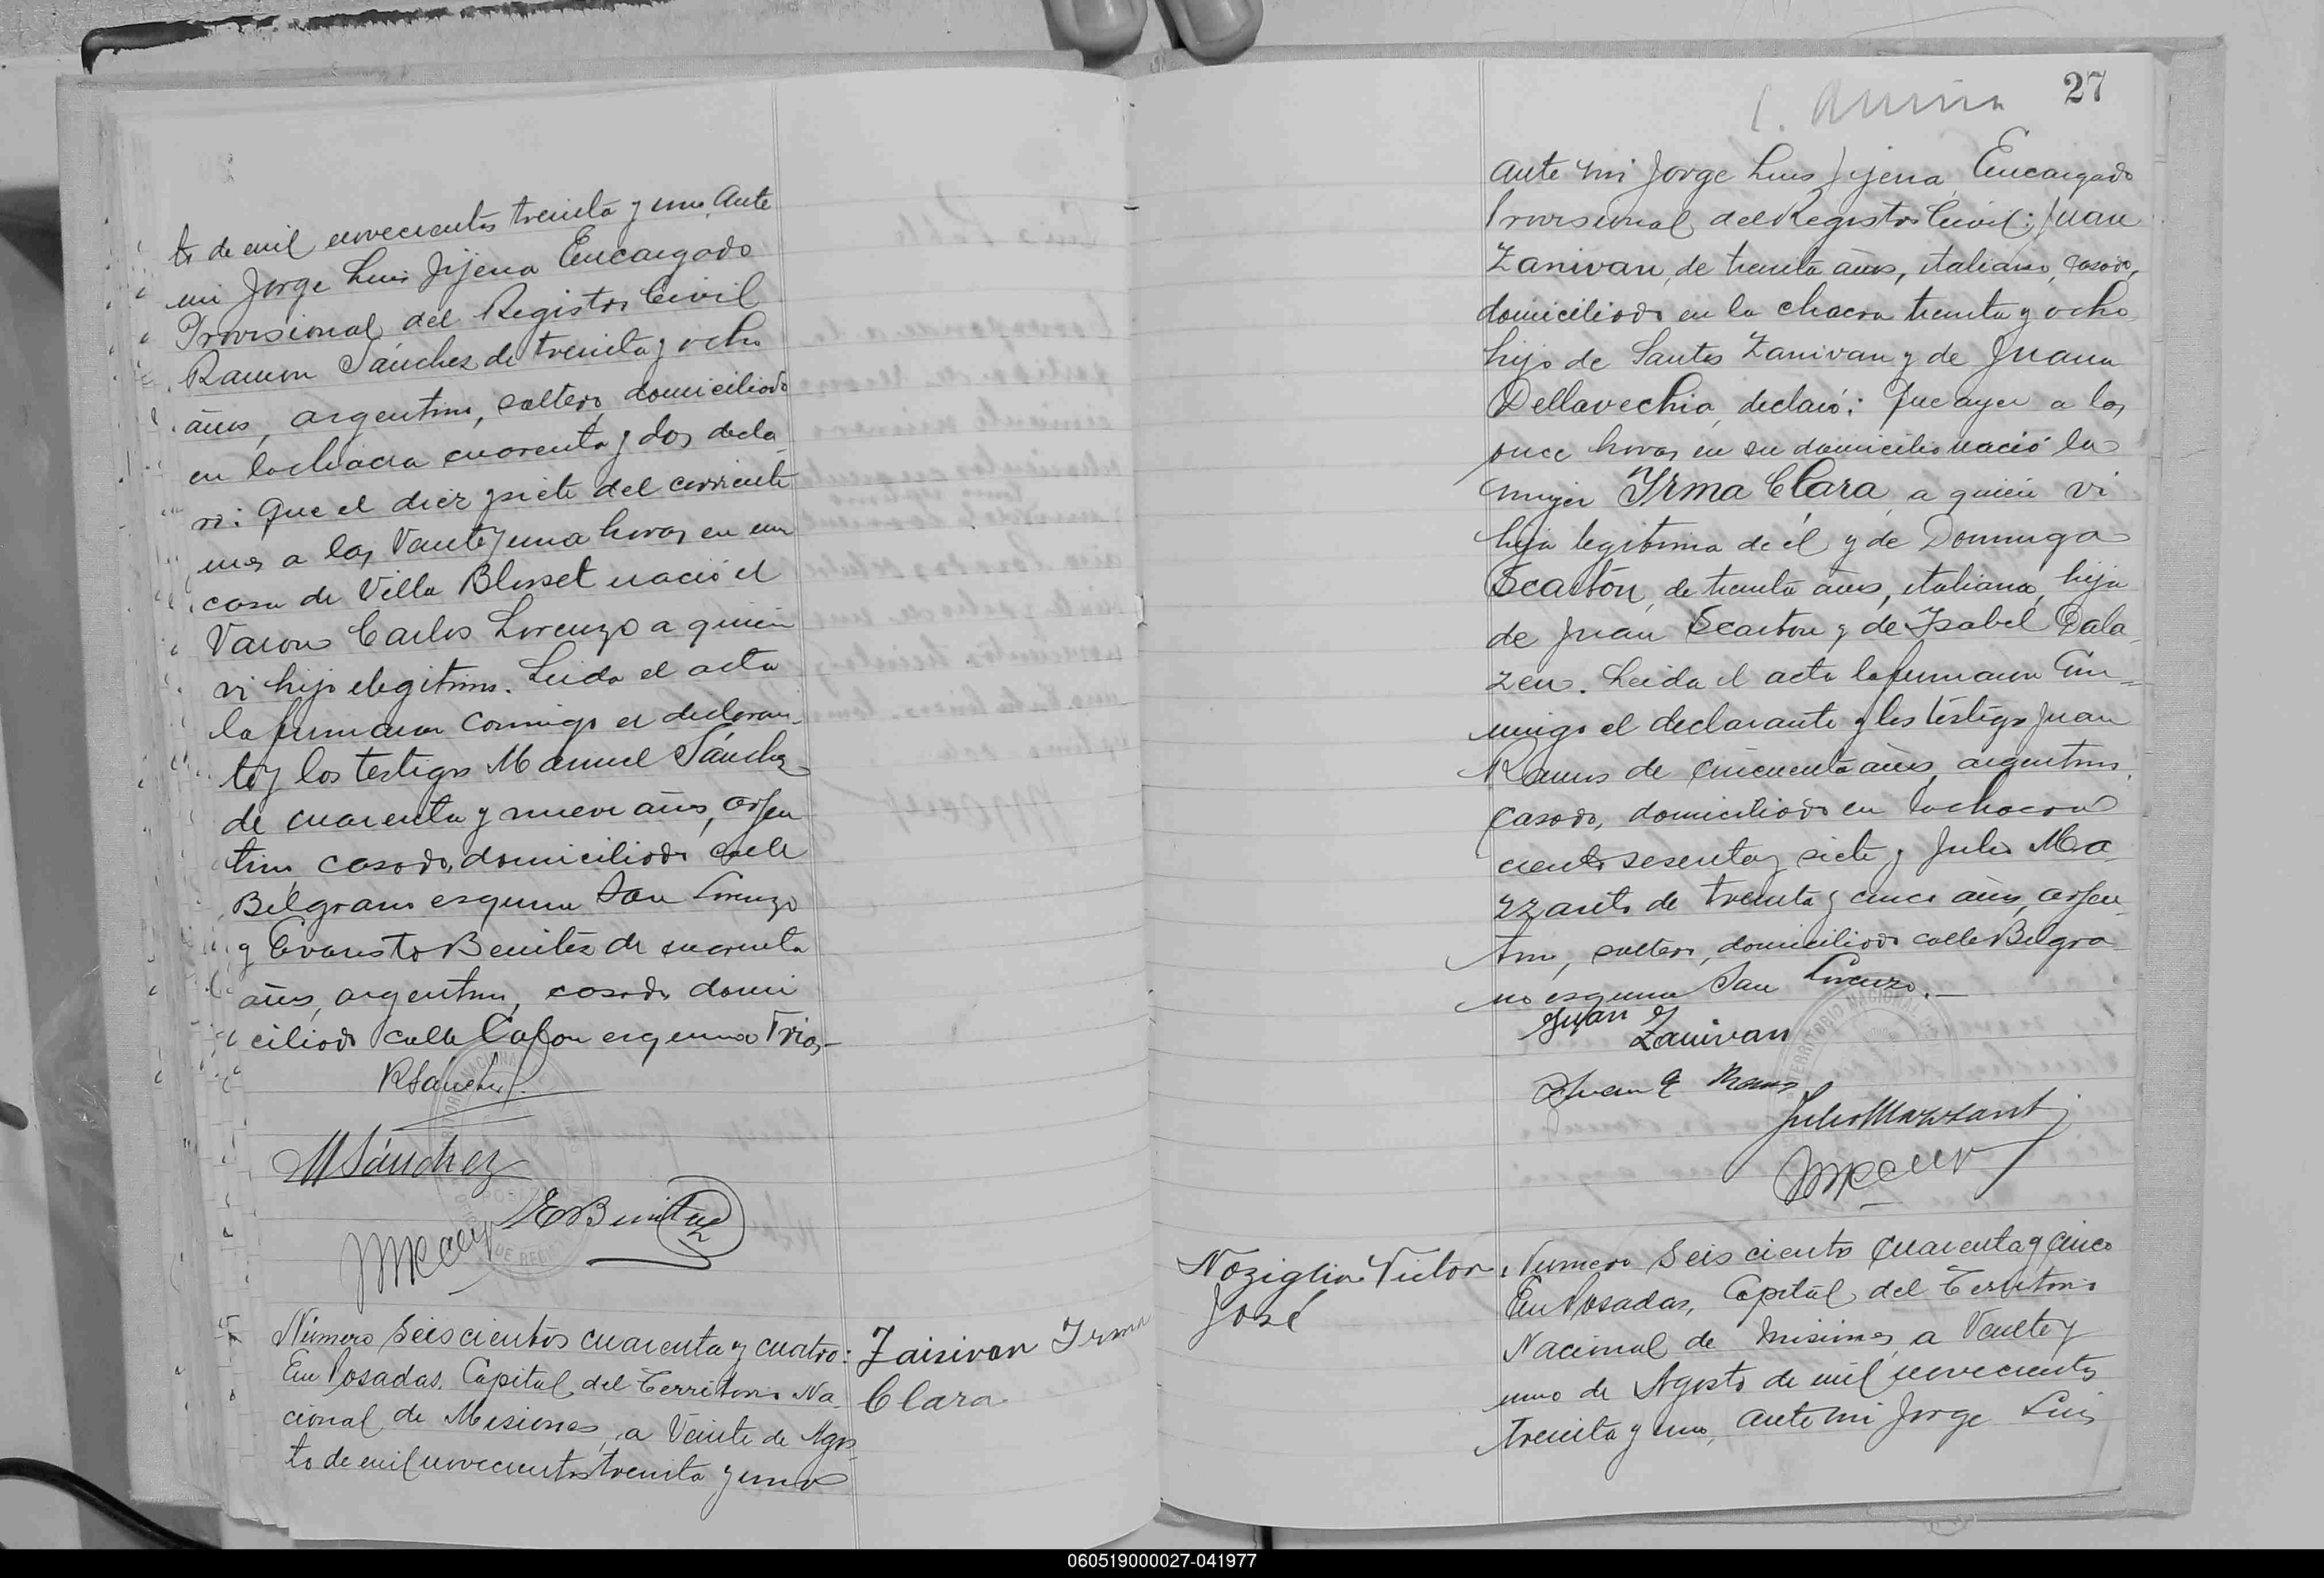 to de mil novecientos treinta y uno, Ante
mi Jorge Luis Jijena Encargado
Provisional del Registro Civil
Ramon Sánchez de treinta y ocho
años, argentino, soltero, domiciliado
en la chacra cuarenta y dos decla
ró: Que el diez y siete del corriente
mes a las veinte y una horas en una
casa de Villa Blosset nació el
Varon Carlos Lorenzo a quien
vi hijo ilegitimo. Leida el acta
la firmaron conmigo el declaran
te y los testigos Manuel Sánchez
de cuarenta y nueve años, argen
tino casado, domiciliado calle
Belgrano esquina San Lorenzo
y Evaristo Benitez de cuarenta
años, argentino, casado domi
ciliado calle Colon esquina Frias
RSanchez
MSánchez
EBenitez
Número seiscientos cuarenta y cuatro:
En Posadas, Capital del Territorio Na
cional de Misiones, a Veinte de Agos
to de mil novecientos treinta y uno
Zaisivan Irma
Clara
27
ante mi Jorge Luis Jijena Encargado
Provisional del Registro Civil: Juan
Zanivan, de treinta años, italiano, casado,
domiciliado en la chacra treinta y ocho
hijo de Santos Zanivan y de Juana
Dellavechia, declaró: Que ayer a las
once horas en su domicilio nació la
mujer Irma Clara, a quien vi
hija legitima de él y de Dominga
Scarton, de treinta años, italiana, hija
de Juan Scarton y de Isabel Dala
zen. Leida el acta la firmaron con
migo el declarante y los testigos Juan
Ramos de cincuenta años, argentino,
casado, domiciliado en la chacra
ciento sesenta y siete y Julio Ma
zzanti de treinta y cinco años, argen
tino, soltero, domiciliado calle Belgra
no esquina San Lorenzo.
Juan
Zanivan
Juan Ramos
Julio Mazzanti
Noziglia Victor
José
Numero seis ciento cuarenta y cinco
En Posadas, Capital del Territorio
Nacional de Misiones a Veinte y
uno de Agosto de mil novecientos
treinta y uno, ante mi Jorge Luis
060519000027-041977